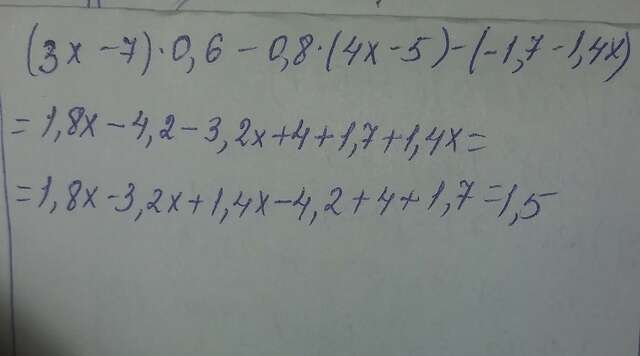 (3x-7)·0,6-0,8·(4x-5)-(-1,7-1,4x)
=1,8x-4,2-3,2x+4+1,7+1,4x=
=1,8x-3,2x+1,4x-4,2+4+1,7=1,5